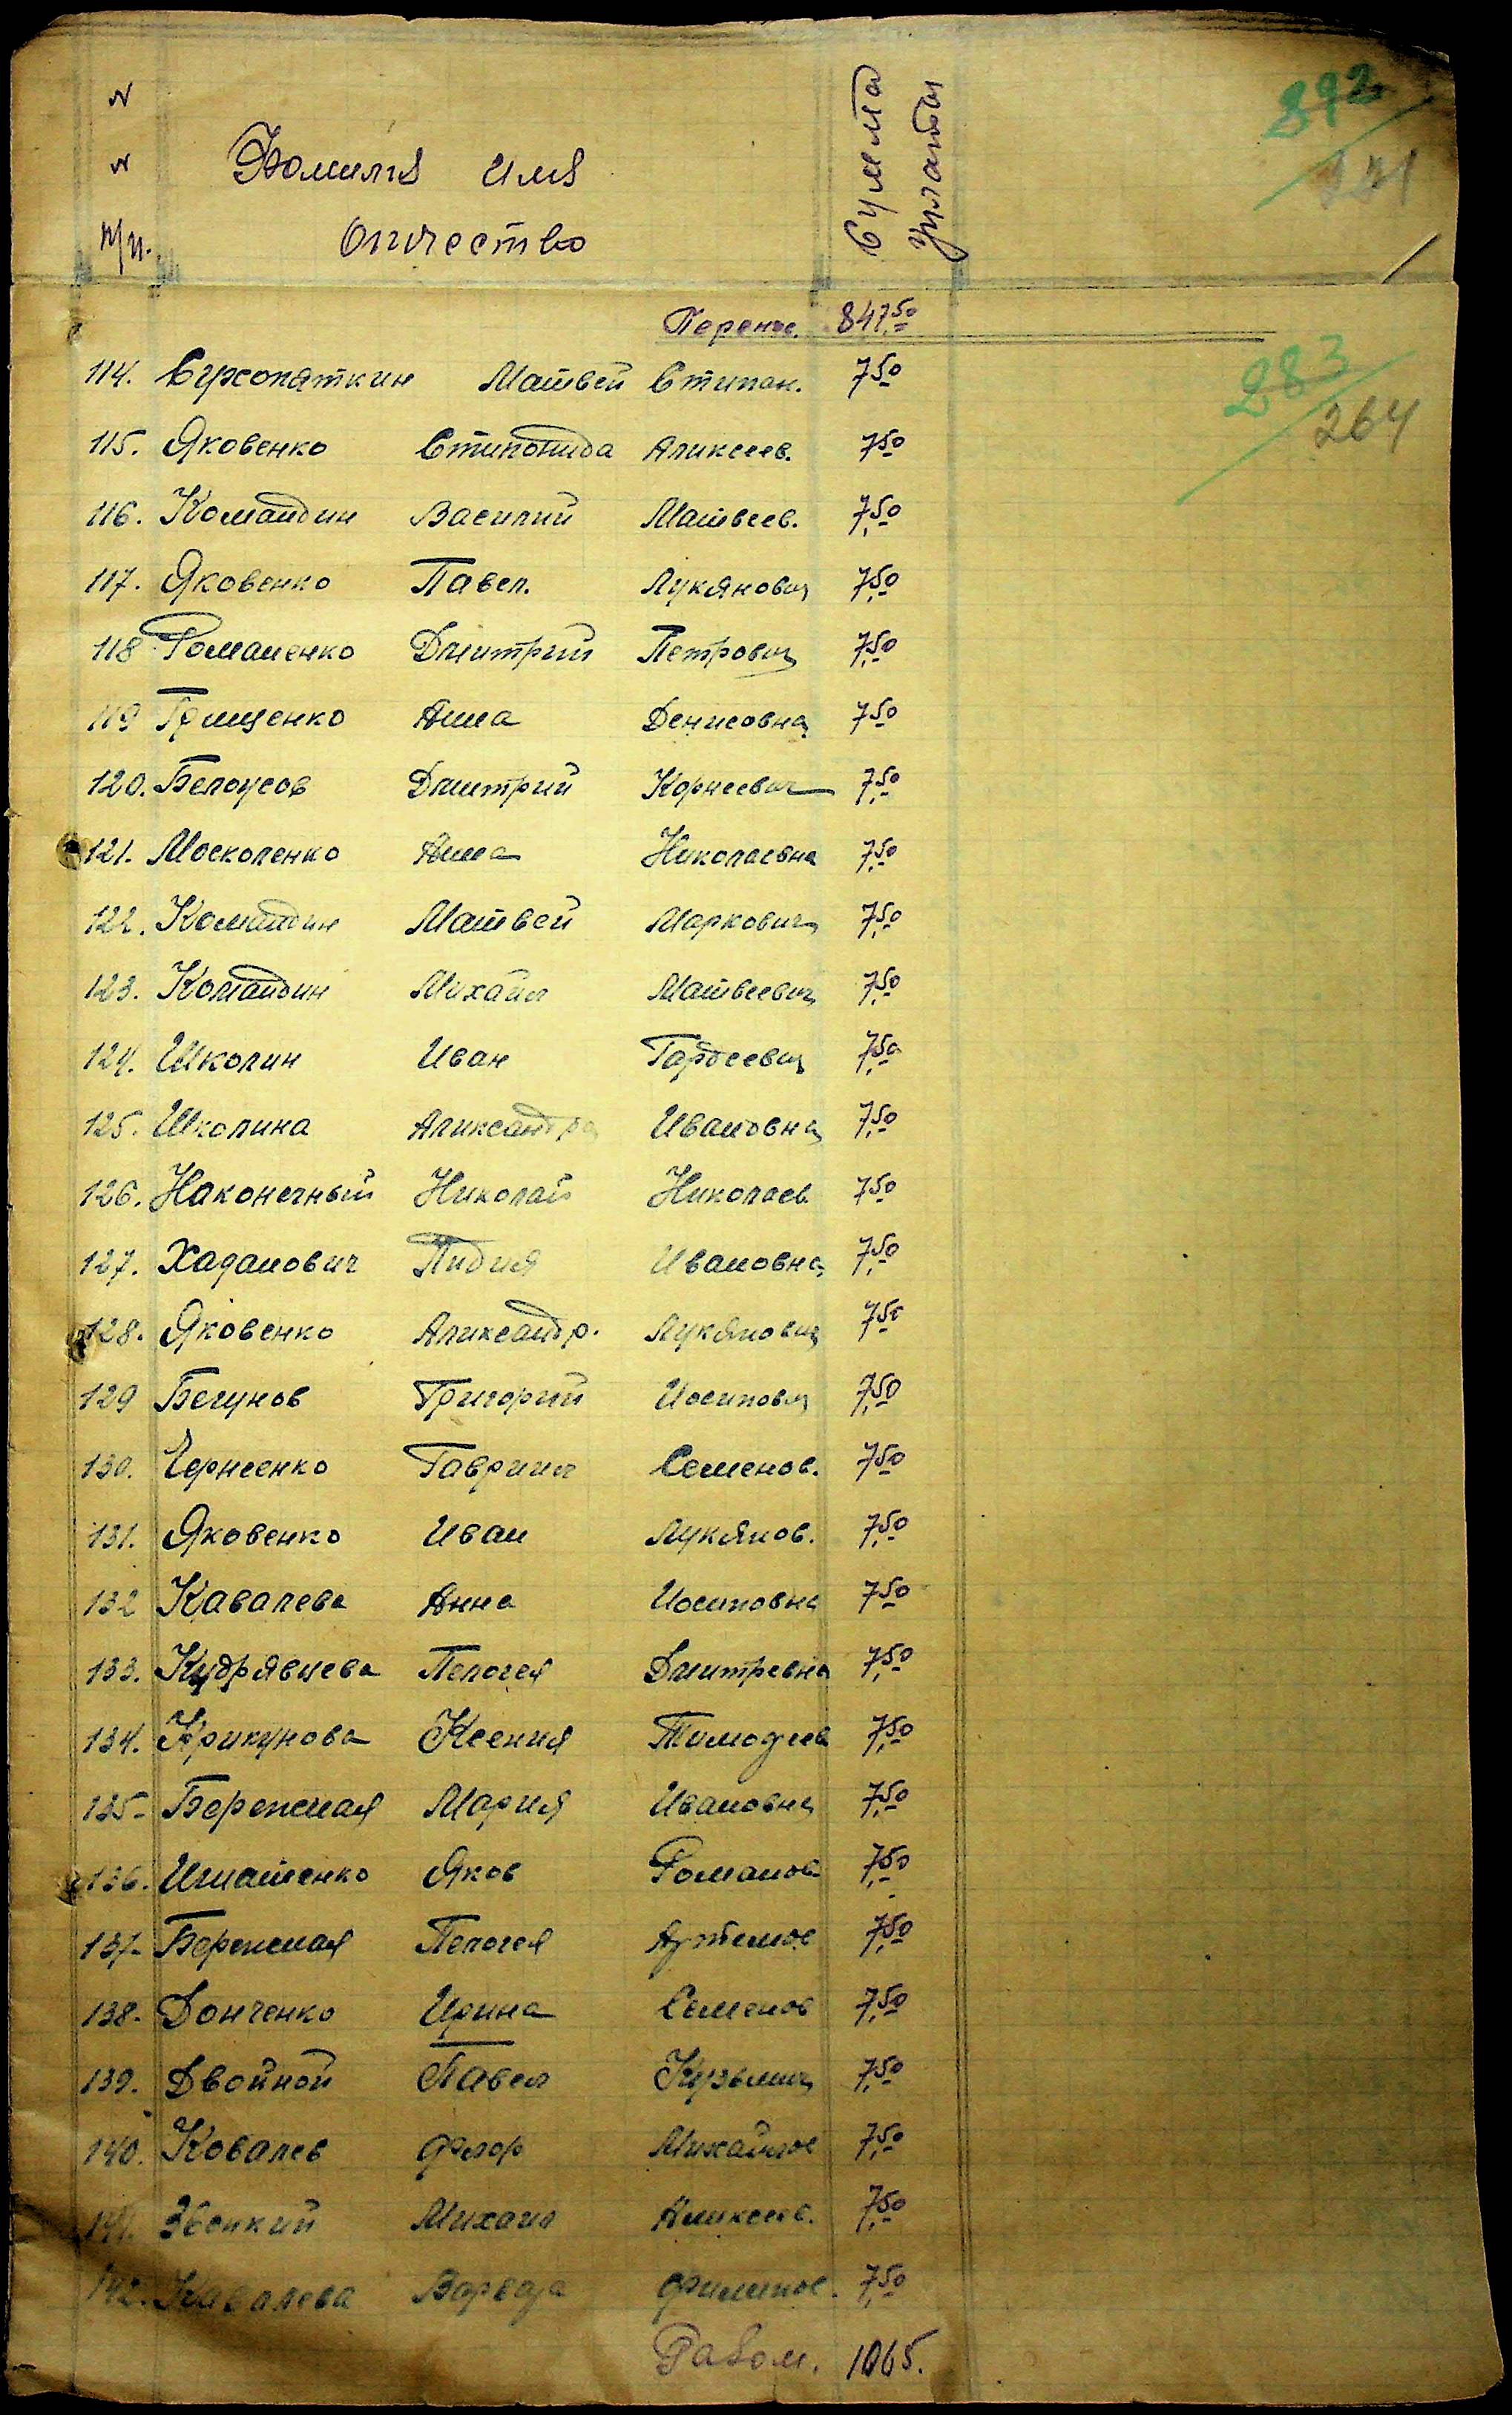 N
N
п/п.
Фомилия имя
Отчество
Сумма
уплаты
892
283
264
Перенос. 847,50
114. Сухопяткин Матвей Стипан. 7,50
115. Яковенко Стипонида Аликсеев. 7,50
116. Командин Василий Матвеев. 7,50
117. Яковенко Павел. Лукянович 7,50
118 Романенко Дмитрий Петрович 7,50
119 Грищенко Анна Денисовна 7,50
120. Белоусов Дмитрий Корнеевич 7,50
121. Москоленко Анна Николаевна 7,50
122. Командин Матвей Маркович 7,50
123. Командин Михаил Матвеевич 7,50
124. Школин Иван Гордеевич 7,50
125. Школина Аликсандра Ивановна 7,50
126. Наконечный Николай Николаев 7,50
127. Хаданович Лидия Ивановна 7,50
128. Яковенко Аликсандр. Лукянович 7,50
129 Бегунов Григорий Иосипович 7,50
130. Чернеенко Гавриил Семенов. 7,50
131. Яковенко Иван Лукянов. 7,50
132 Кавалева Анна Иосиповна 7,50
133. Кудрявцева Пелогея Дмитревна 7,50
134. Крикунова Ксения Тимофеев 7,50
135- Бережная Мария Ивановна 7,50
136. Игнатенко Яков Романов 7,50
137- Бережная Пелогея Артемов 7,50
138. Донченко Ирина Семенов 7,50
139. Двойной Павел Кузьмич 7,50
140. Ковалев Флор Михайлов 7,50
141. Звонкий Михаил Аликсеев. 7,50
142. Кавалева Варвара Филипов. 7,50
Разом. 1065.